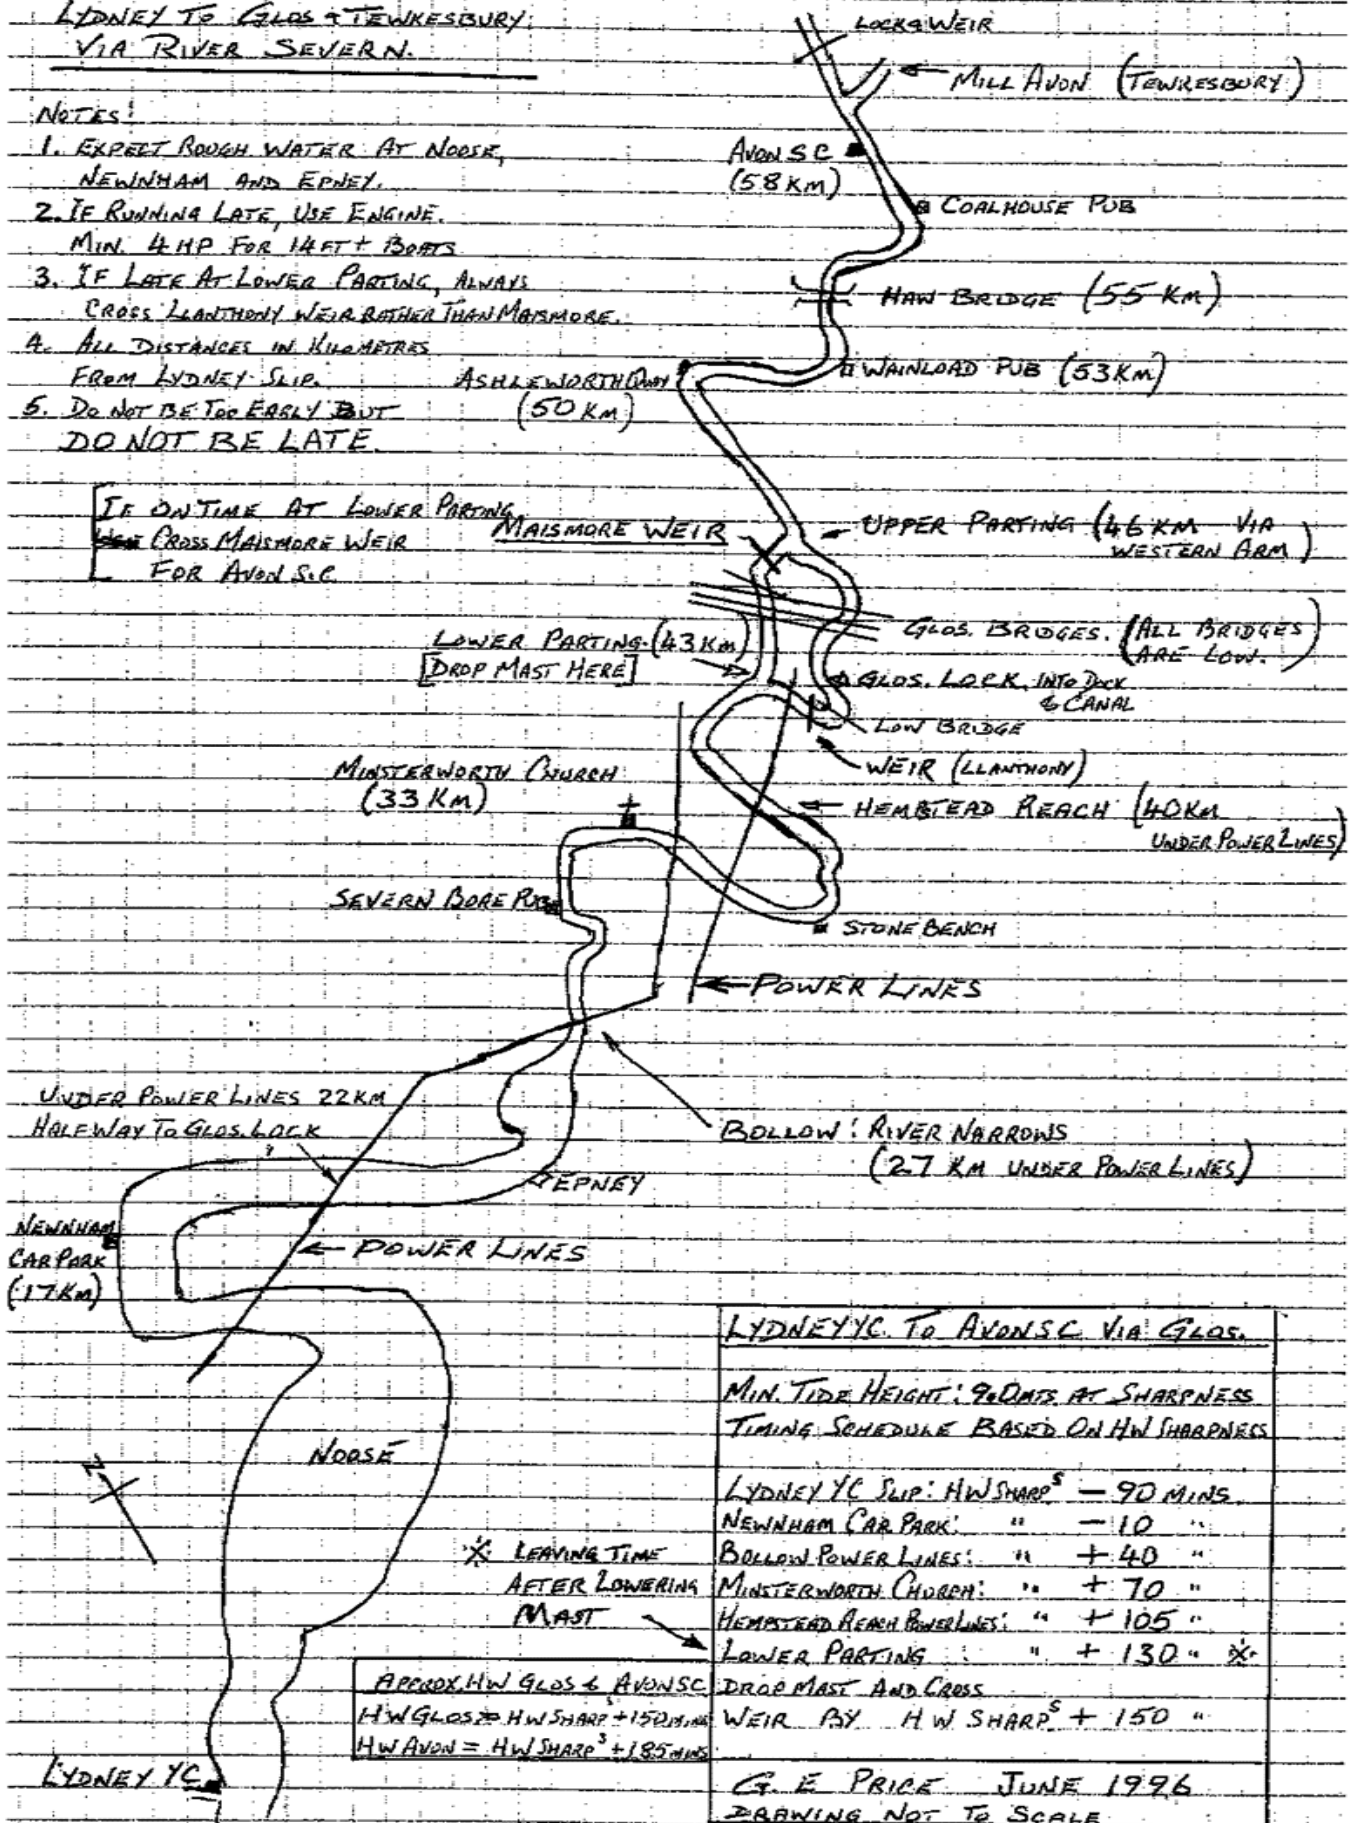 LYDNEY TO GLOS & TEWKESBURY
VIA RIVER SEVERN.
NOTES:
1. EXPECT ROUGH WATER AT NOOSE,
NEWNHAM AND EPNEY.
2. IF RUNNING LATE, USE ENGINE.
MIN. 4 HP FOR 14 FT + BOATS
3. IF LATE AT LOWER PARTING, ALWAYS
CROSS LLANTHONY WEIR RATHER THAN MAISMORE.
4. ALL DISTANCES IN KILOMETRES
FROM LYDNEY SLIP.
5. DO NOT BE TOO EARLY BUT
DO NOT BE LATE.
IF ON TIME AT LOWER PARTING,
CROSS MAISMORE WEIR
FOR AVON S.C.
LOCK & WEIR
MILL AVON (TEWKESBURY)
AVON SC
(58 KM)
COALHOUSE PUB
HAW BRIDGE (55 KM)
WAINLOAD PUB (53KM)
ASHLEWORTH QUAY
(50 KM)
MAISMORE WEIR
UPPER PARTING (46 KM VIA
WESTERN ARM)
GLOS. BRIDGES. (ALL BRIDGES
ARE LOW.)
LOWER PARTING (43 KM)
[DROP MAST HERE]
GLOS. LOCK, INTO DOCK
& CANAL
LOW BRIDGE
WEIR (LLANTHONY)
MINSTERWORTH CHURCH
(33 KM)
HEMPSTEAD REACH (40KM
UNDER POWER LINES)
SEVERN BORE PUB
STONEBENCH
POWER LINES
UNDER POWER LINES 22 KM
HALFWAY TO GLOS. LOCK
BOLLOW: RIVER NARROWS
(27 KM UNDER POWER LINES)
EPNEY
NEWNHAM
CAR PARK
(17 KM)
POWER LINES
NOOSE
N
LYDNEY YC. TO AVON SC VIA GLOS.
MIN. TIDE HEIGHT: 9.0 MTS AT SHARPNESS
TIMING SCHEDULE BASED ON HW SHARPNESS
LYDNEY YC SLIP: HW SHARPS - 90 MINS
NEWNHAM CAR PARK: " - 10 "
BOLLOW POWER LINES: " + 40 "
MINSTERWORTH CHURCH: " + 70 "
HEMPSTEAD REACH POWER LINES: " + 105 "
LOWER PARTING : " + 130 " ※
DROP MAST AND CROSS
WEIR BY HW SHARPS + 150 "
※ LEAVING TIME
AFTER LOWERING
MAST
APPROX. HW GLOS & AVON SC
HW GLOS = HW SHARPS + 150 MINS
HW AVON = HW SHARPS + 185 MINS
G. E PRICE JUNE 1996
DRAWING NOT TO SCALE
LYDNEY YC